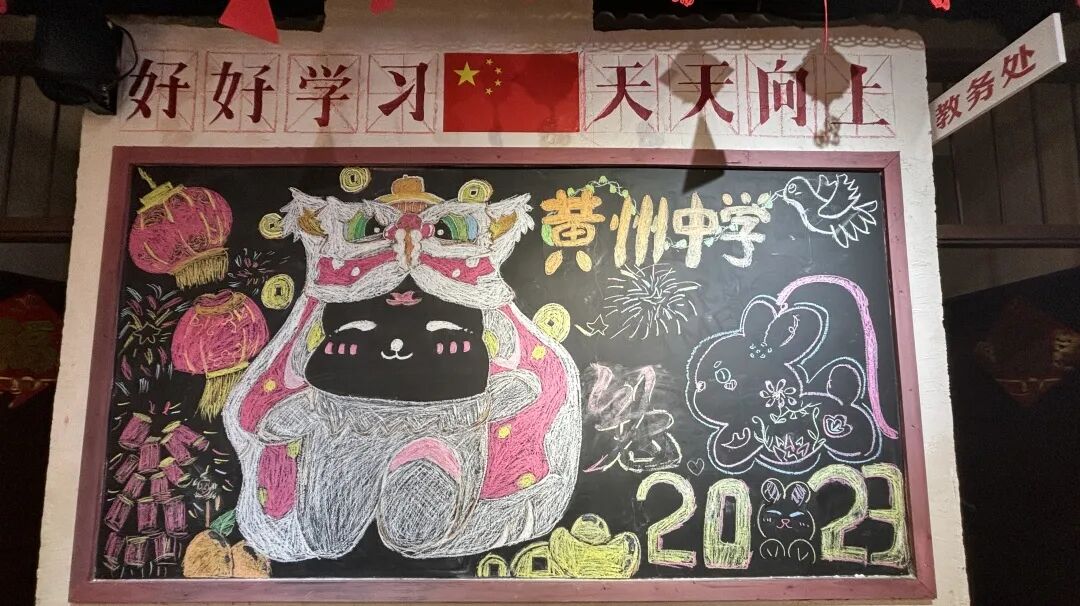 好好学习 天天向上
教务处
黄州中学
兔
2023